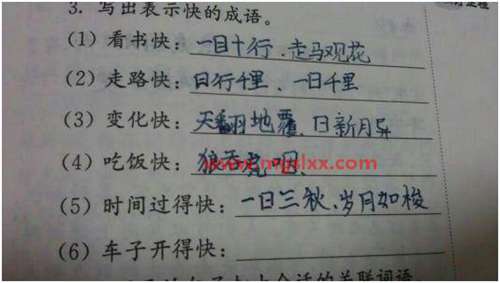 3. 写出表示快的成语。
(1) 看书快：一目十行、走马观花
(2) 走路快：日行千里、一日千里
(3) 变化快：天翻地覆、日新月异
(4) 吃饭快：狼吞虎咽、
www.mgslxx.com
(5) 时间过得快：一日三秋、岁月如梭
(6) 车子开得快：